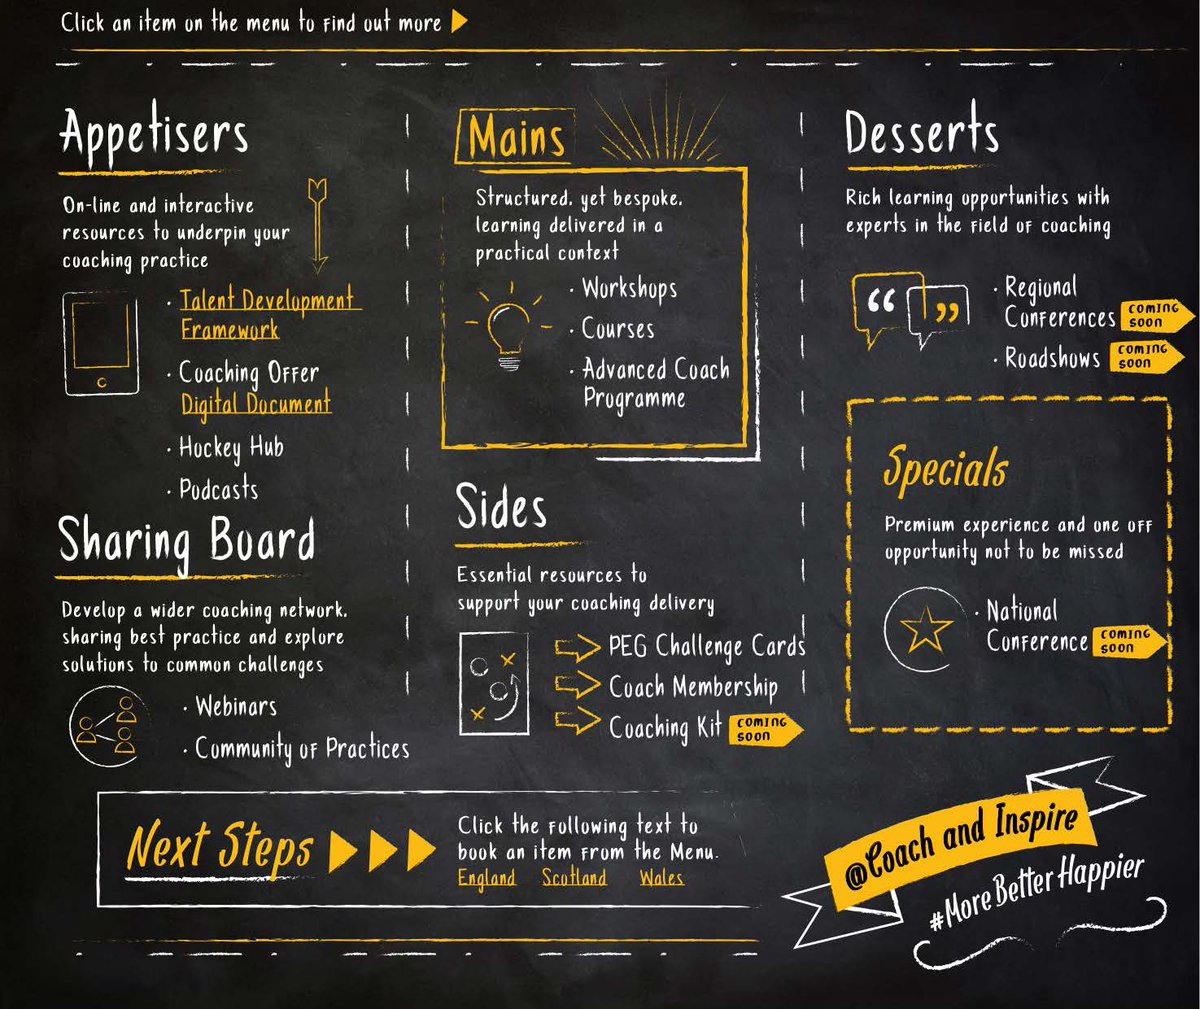 Click an item on the menu to find out more
Appetisers
On-line and interactive
resources to underpin your
coaching practice
· Talent Development
Framework
· Coaching Offer
Digital Document
· Hockey Hub
· Podcasts
Sharing Board
Develop a wider coaching network,
sharing best practice and explore
solutions to common challenges
· Webinars
· Community of Practices
Mains
Structured, yet bespoke,
learning delivered in a
practical context
· Workshops
· Courses
· Advanced Coach
Programme
Sides
Essential resources to
support your coaching delivery
PEG Challenge Cards
Coach Membership
Coaching Kit
COMING
SOON
Desserts
Rich learning opportunities with
experts in the field of coaching
“ ”
· Regional
Conferences
COMING
SOON
· Roadshows
COMING
SOON
Specials
Premium experience and one off
opportunity not to be missed
· National
Conference
COMING
SOON
Next Steps
Click the following text to
book an item from the Menu.
England Scotland Wales
@Coach and Inspire
#More Better Happier